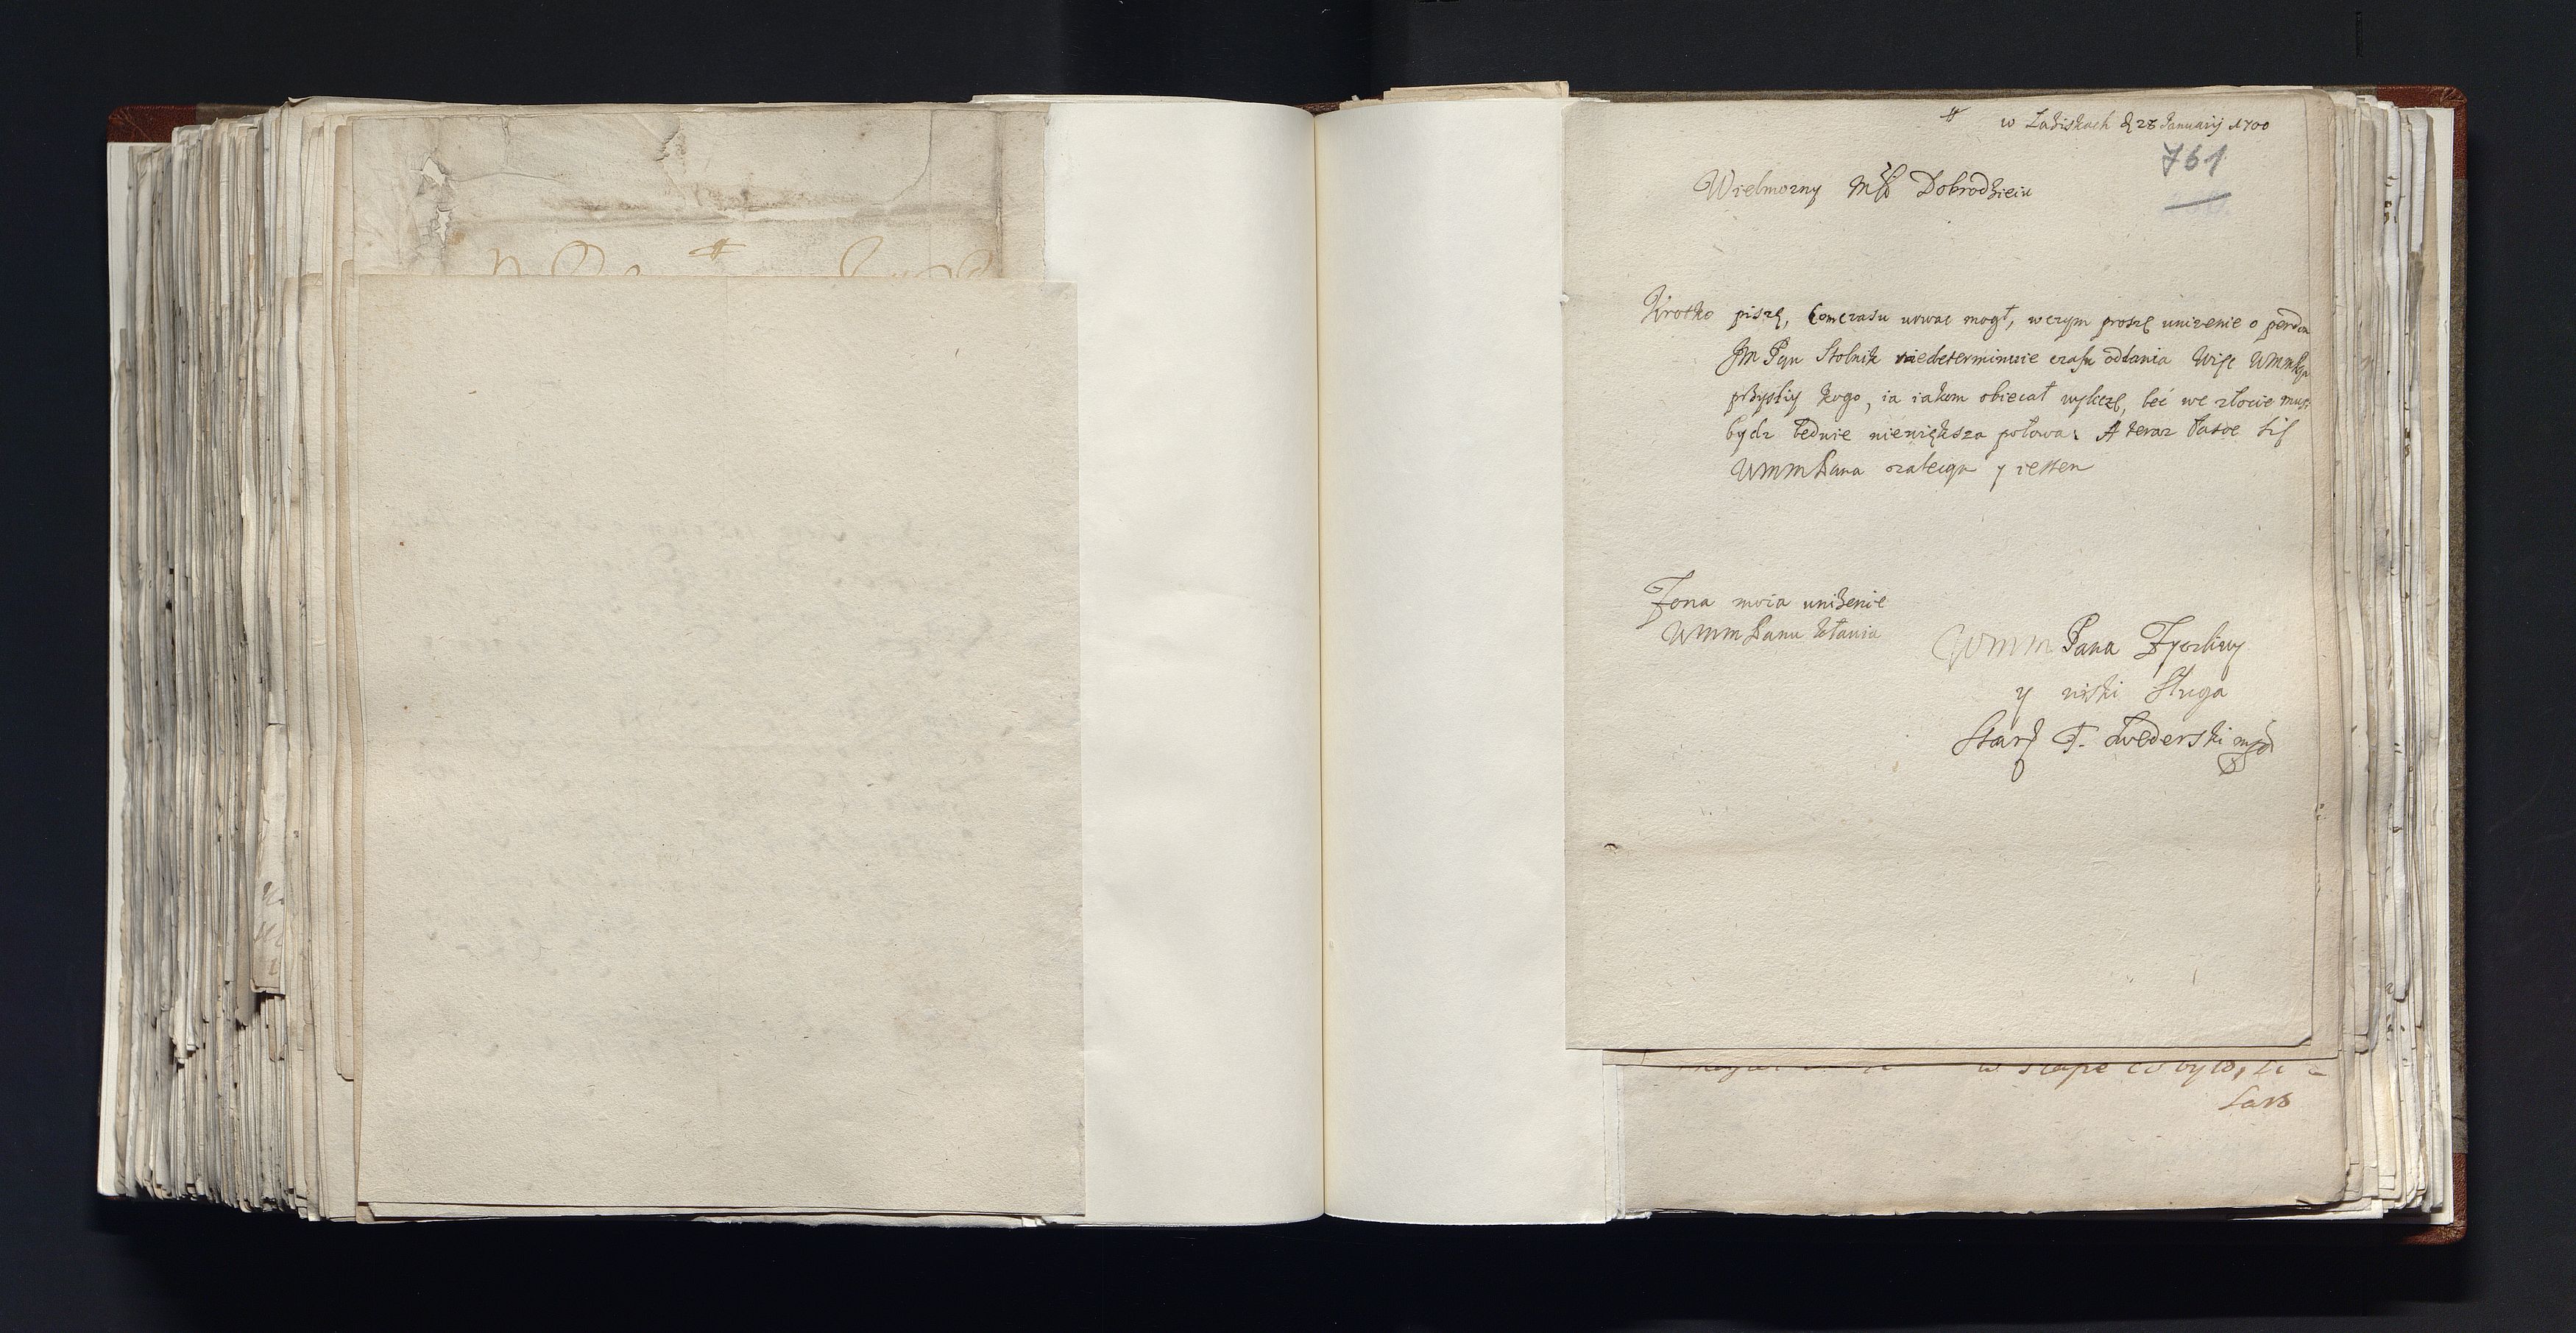 w Łaziskach d 28 Januarij 1700
761
Wielmozny Dobrodzieiu
Krotko piszę, bom czasu urwac mogł, w czym proszę unizenie o perdon
Jm Pan Stolnik niedeterminuie czasu oddania Więc WmmPan
przysliy kogo, ia iakom obiecał wyliczę, leć we złocie musi
bydz ledwie niewiększa połowa: A teraz Łasce się
WmmPana zalecam y iestem
Zona moia unizenie
WmmPanu kłania
WmmPana Zyczliwy
y niski Sługa
w szape co było,